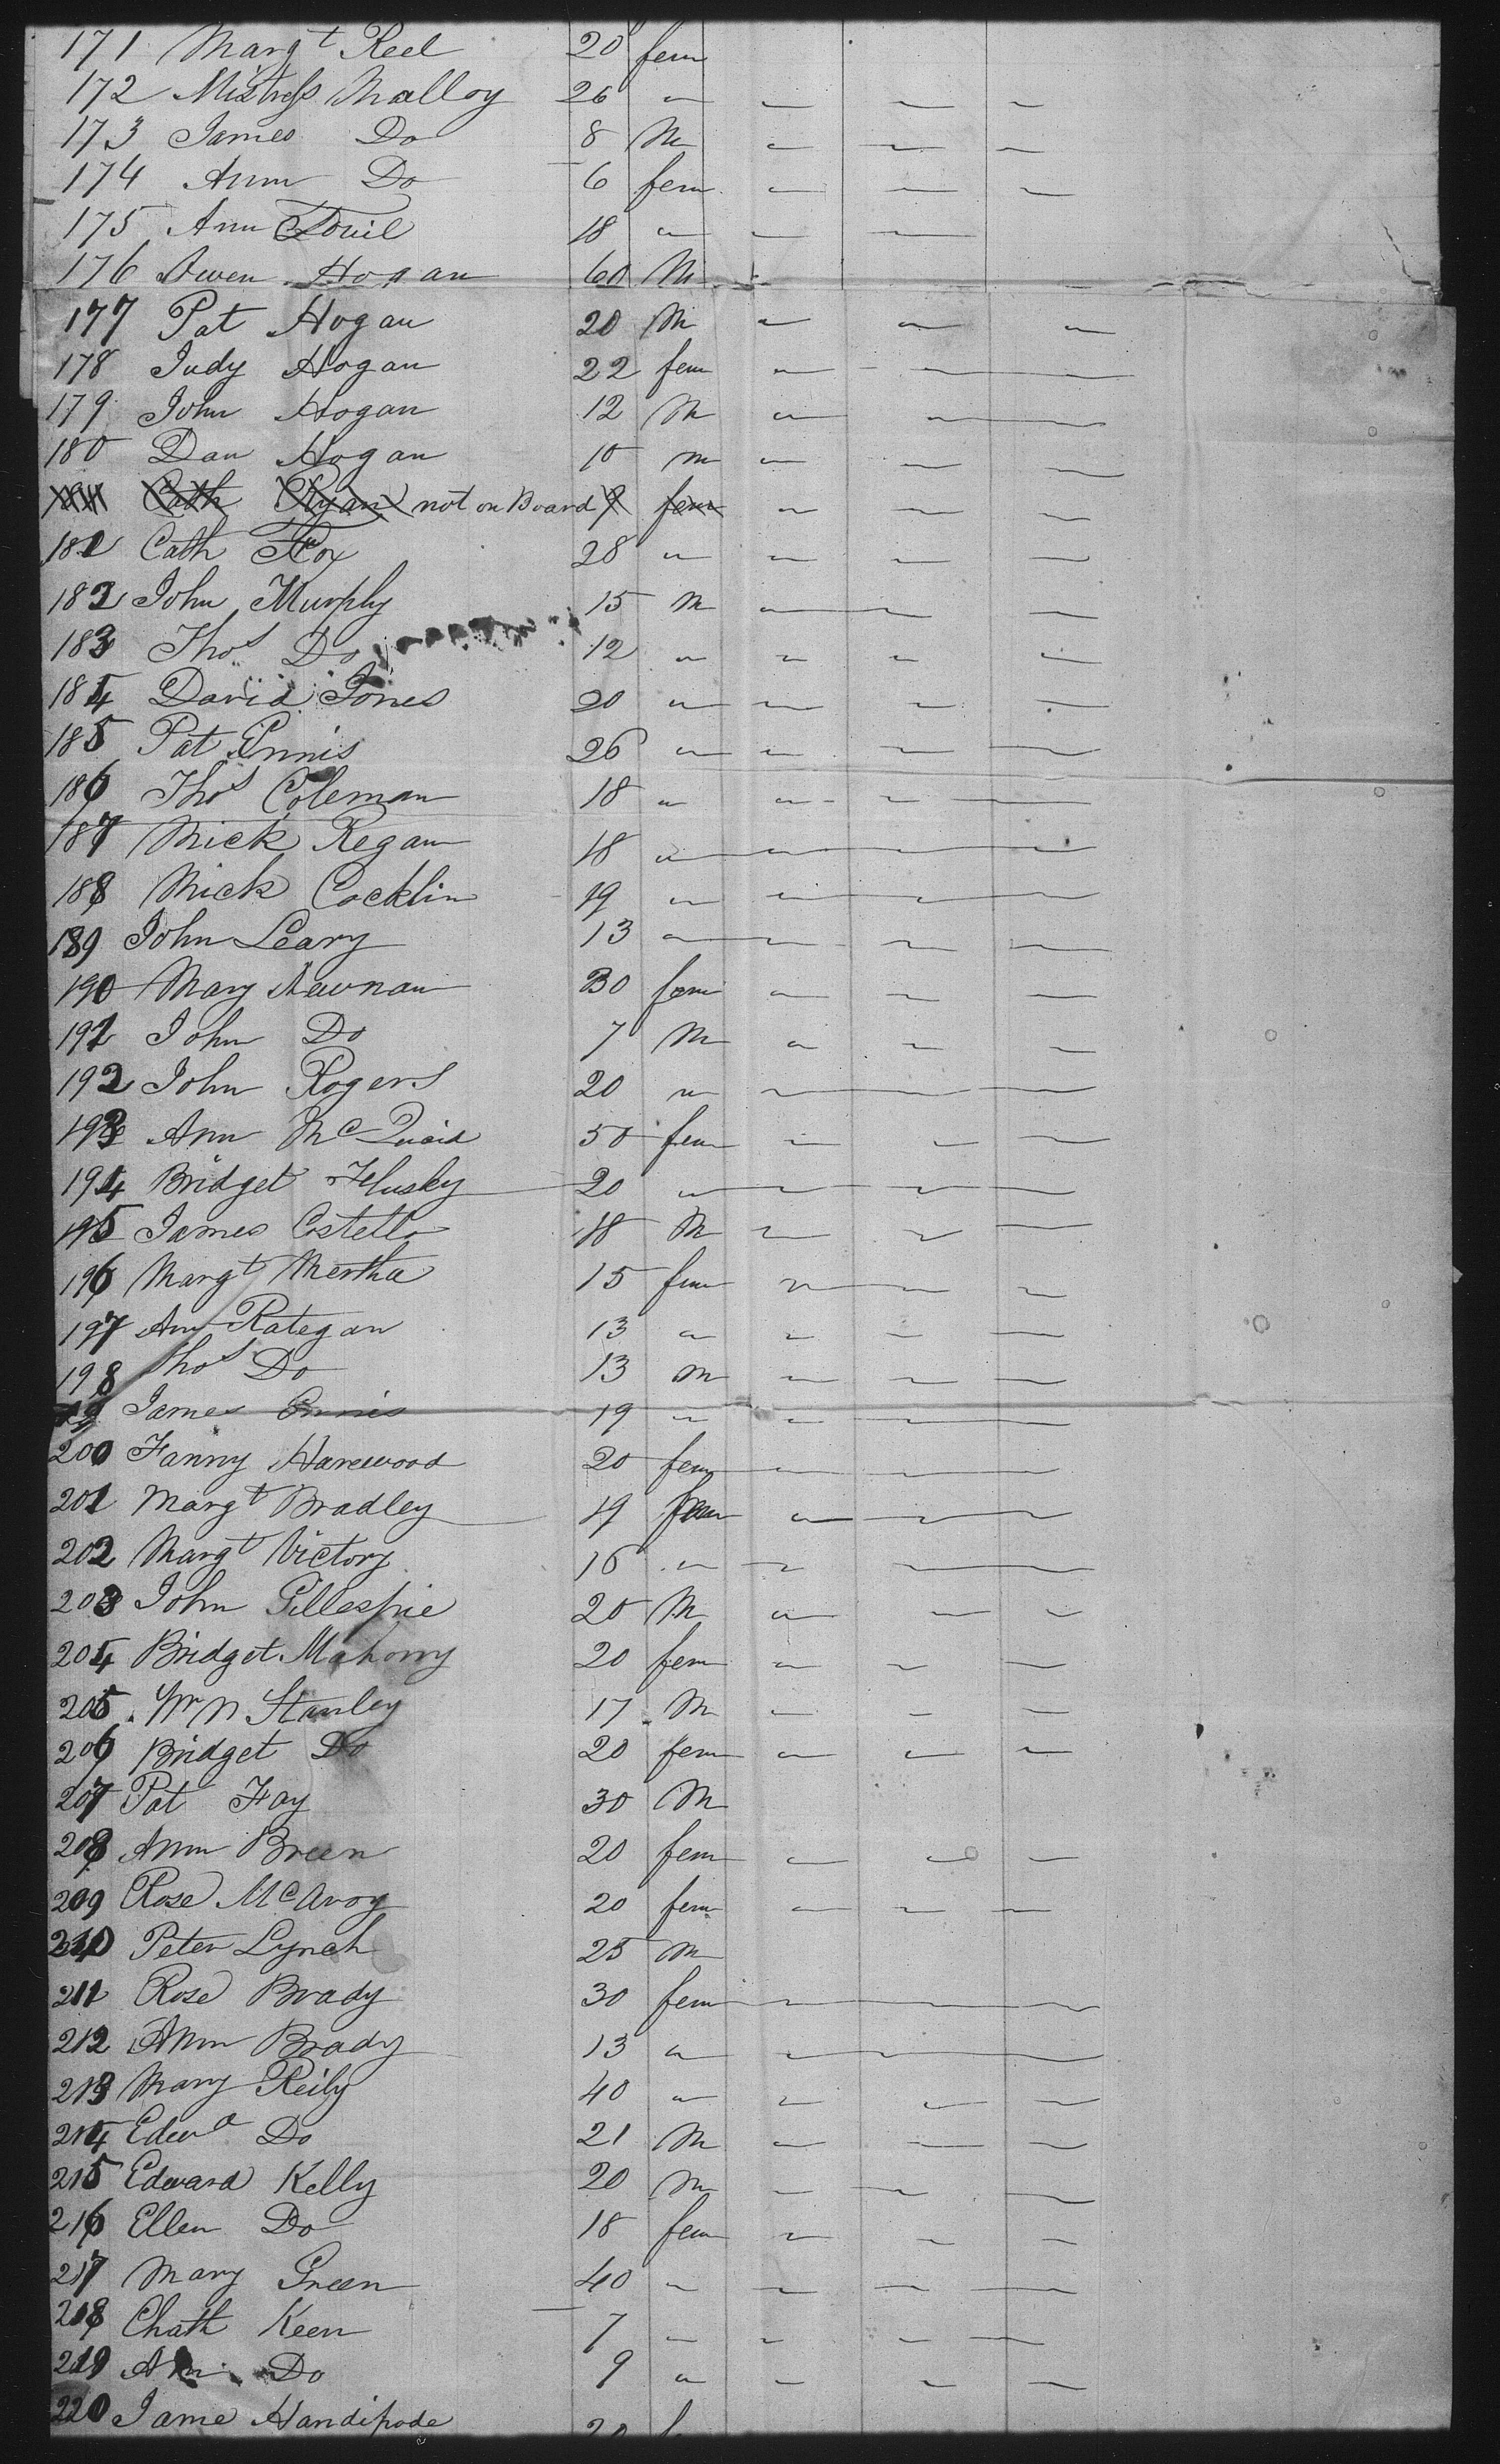 171 Margt Reel 20 fem
172 Mistress Malloy 26 "
173 James Do 8 M
174 Ann Do 6 fem
175 Ann 18 "
176 Owen Hogan 60 M
177 Pat Hogan 20 M
178 Judy Hogan 22 fem
179 John Hogan 12 M
180 Dan Hogan 10 m
Cath Ryan not on Board 9 fem
181 Cath Fox 28 "
182 John Murphy 15 M
183 Thos Do 12 "
184 David Jones 20 "
185 Pat Ennis 26 "
186 Thos Coleman 18 "
187 Mick Regan 18 "
188 Mick Cocklin 19 "
189 John Leary 13 "
190 Mary Newnan 30 fem
191 John Do 7 M
192 John Rogers 20 "
193 Ann McQuaid 50 fem
194 Bridget Flusky 20 "
195 James Costello 18 M
196 Margt Mertha 15 fem
197 Ann Rategan 13 "
198 Thos Do 13 m
199 James Ennis 19 "
200 Fanny Harewood 20 fem
201 Margt Bradley 19 fem
202 Margt Victory 16 "
203 John Gillespie 20 M
204 Bridget Mahony 20 fem
205 Wm Stanley 17 M
206 Bridget Do 20 fem
207 Pat Fay 30 M
208 Ann Breen 20 fem
209 Rose McAvoy 20 fem
210 Peter Lynch 25 M
211 Rose Brady 30 fem
212 Ann Brady 13 "
213 Mary Reily 40 "
214 Edwd Do 21 M
215 Edward Kelly 20 m
216 Ellen Do 18 fem
217 Mary Green 40 "
218 Chath Keen 7 "
219 Ann Do 9 "
220 Jame Handipode 20